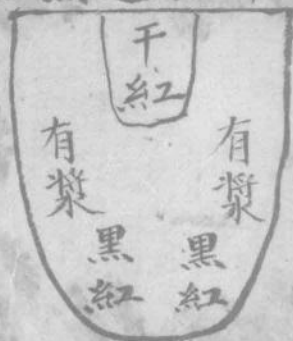 干紅
有漿
有漿
黒紅
黒紅